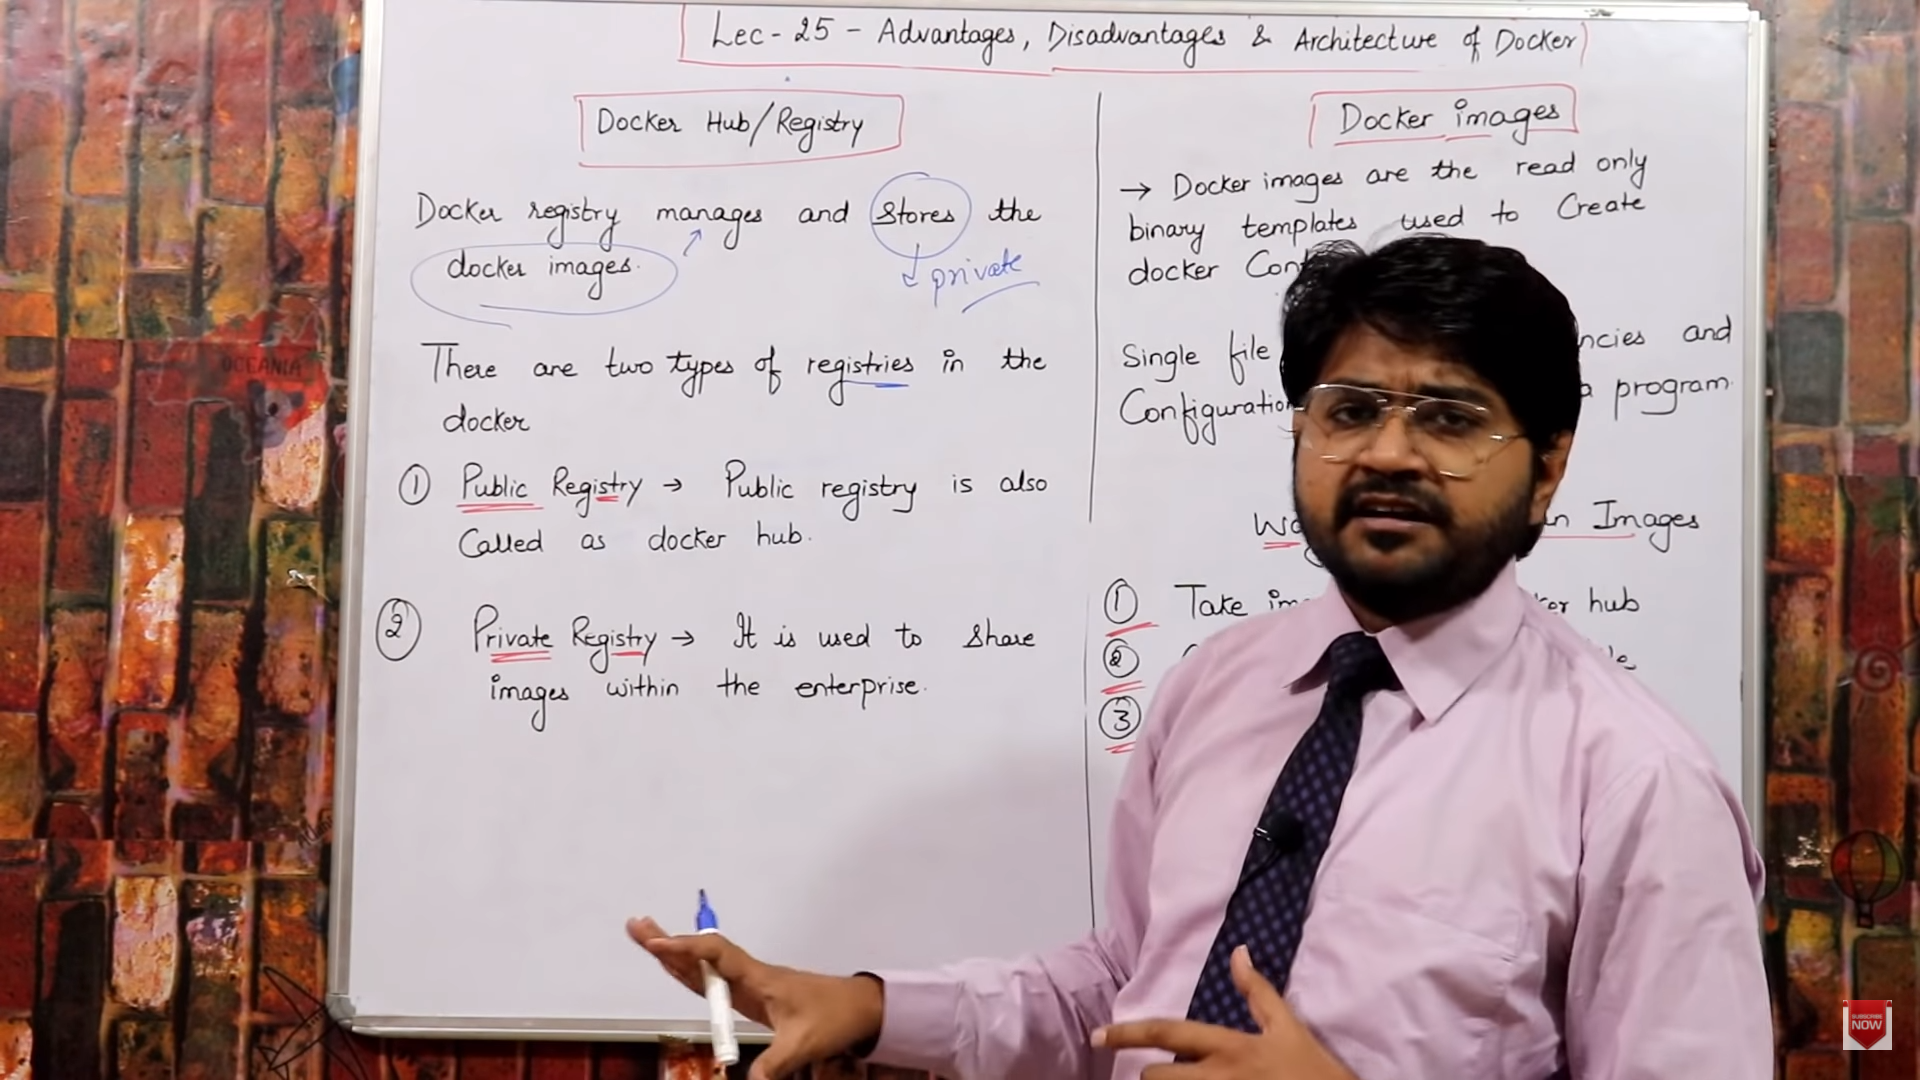 Lec-25 - Advantages, Disadvantages & Architecture of Docker
Docker Hub/Registry
Docker registry manages and stores the
docker images.
private
There are two types of registries in the
docker
① Public Registry → Public registry is also
Called as docker hub.
② Private Registry → It is used to share
images within the enterprise.
Docker images
→ Docker images are the read only
binary templates used to Create
docker
Single file
and
a program.
Images
① Take hub
②
③
OCEANIA
SUBSCRIBE
NOW